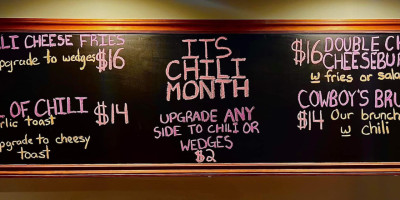 LI CHEESE FRIES
pgrade to wedges $16
L OF CHILI $14
rlic toast
pgrade to cheesy
toast
ITS
CHILI
MONTH
UPGRADE ANY
SIDE TO CHILI OR
WEDGES
$2
$16 DOUBLE CH
CHEESEBU
w fries or sala
COWBOY'S BRU
$14 Our brunch
w chili